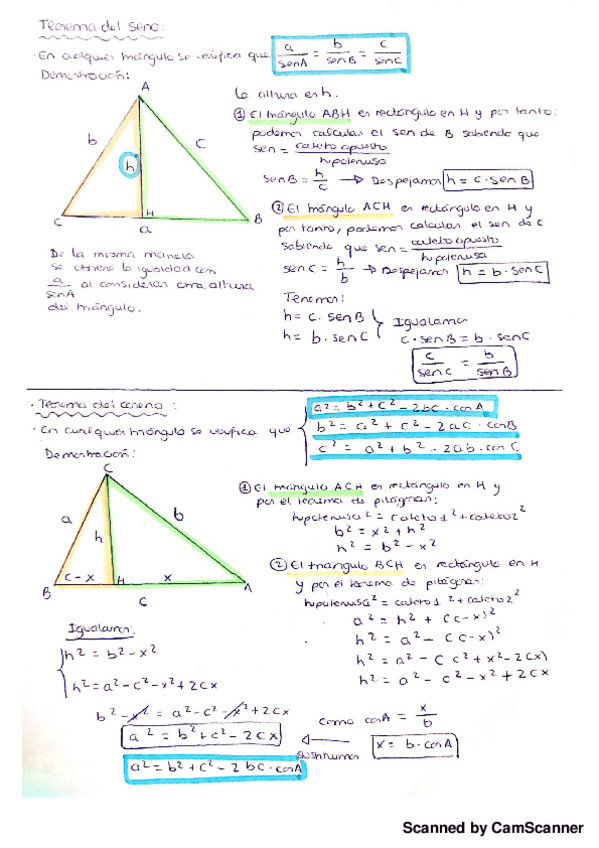 Teorema del seno:
· En cualquier triángulo se verifica que a/senA = b/senB = c/senC
Demostración:
A
b
c
h
C
H
B
a
La altura es h.
① El triángulo ABH es rectángulo en H y por tanto:
podemos calcular el sen de B sabiendo que
sen = cateto opuesto/hipotenusa
senB = h/c → Despejamos h = c · senB
② El triángulo ACH es rectángulo en H y
por tanto, podemos calcular el sen de C
sabiendo que sen = cateto opuesto/hipotenusa
senC = h/b → Despejamos h = b · senC
De la misma manera
se obtiene la igualdad con
a/senA al considerar otra altura
del triángulo.
Tenemos:
h = c · senB
h = b · senC
Igualamos
c · senB = b · senC
c/senC = b/senB
· Teorema del coseno:
· En cualquier triángulo se verifica que
a² = b² + c² - 2bc · cosA
b² = a² + c² - 2ac · cosB
c² = a² + b² - 2ab · cosC
Demostración:
C
a
b
h
c-x
H
x
B
A
c
① El triángulo ACH es rectángulo en H y
por el teorema de pitágoras:
hipotenusa² = cateto1² + cateto2²
b² = x² + h²
h² = b² - x²
② El triangulo BCH es rectángulo en H
y por el teorema de pitágoras:
hipotenusa² = cateto1² + cateto2²
a² = h² + (c-x)²
h² = a² - (c-x)²
h² = a² - (c² + x² - 2cx)
h² = a² - c² - x² + 2cx
Igualamos:
h² = b² - x²
h² = a² - c² - x² + 2cx
b² - x² = a² - c² - x² + 2cx
a² = b² + c² - 2cx
como cosA = x/b
x = b · cosA
sustituimos
a² = b² + c² - 2bc · cosA
Scanned by CamScanner